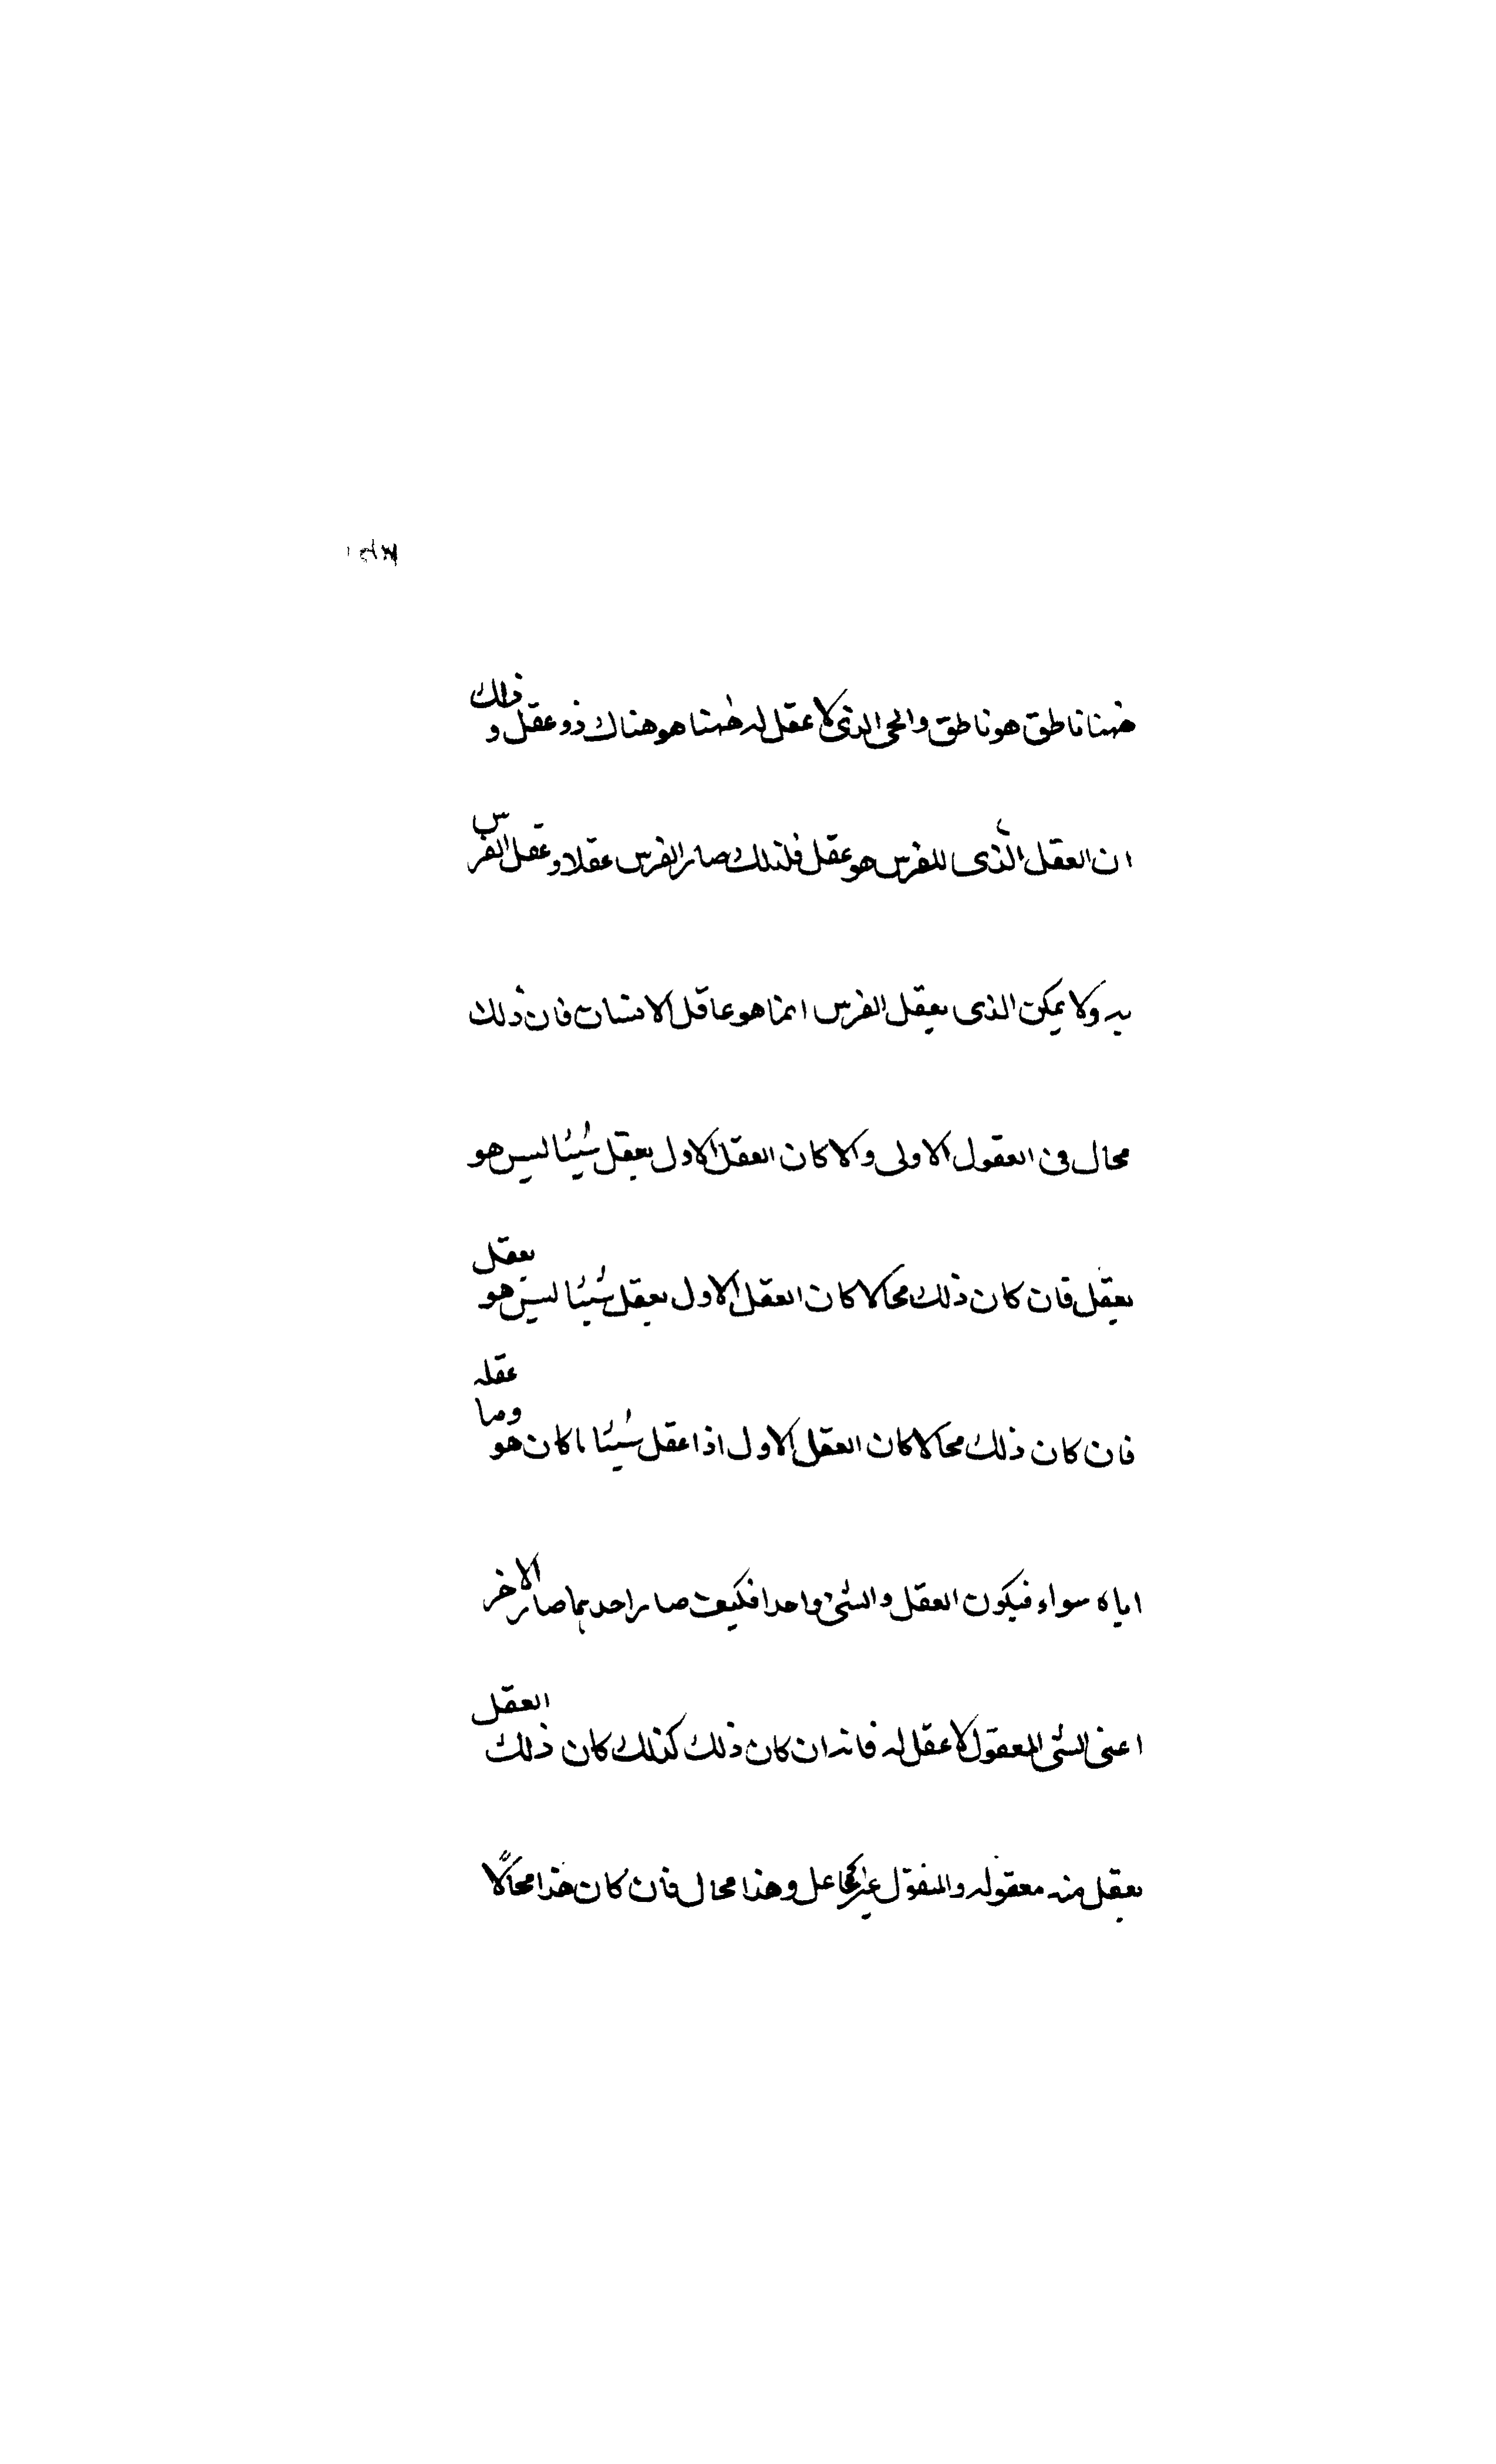 ههنا ناطق هو ناطق والحى الذى لا عقل له ههنا هو هناك ذو عقل و ذلك
ان العقل الذى للفرس هو عقل فلذلك صار الفرس عقلا وعقل الفرس
به ولا يمكن الذى يعقل الفرس انما هو عاقل الانسان فان ذلك
محال فى العقول الاولى والا كان العقل الاول يعقل شيئا ليس هو
يعقل فان كان ذلك محالا كان العقل الاول يعقل شيئا ليس هو يعقل
فان كان ذلك محالا كان العقل الاول اذا عقل شيئا ما كان هو وما عقله
اياه سواء فيكون العقل والشئ واحدا فكيف صار احدهما صار الاخر
اعنى الشئ المعقول لا عقل له فانه ان كان ذلك كذلك كان ذلك العقل
يعقل منه معقوله والمنقول غير عاقل وهذا محال فان كان هذا محالًا